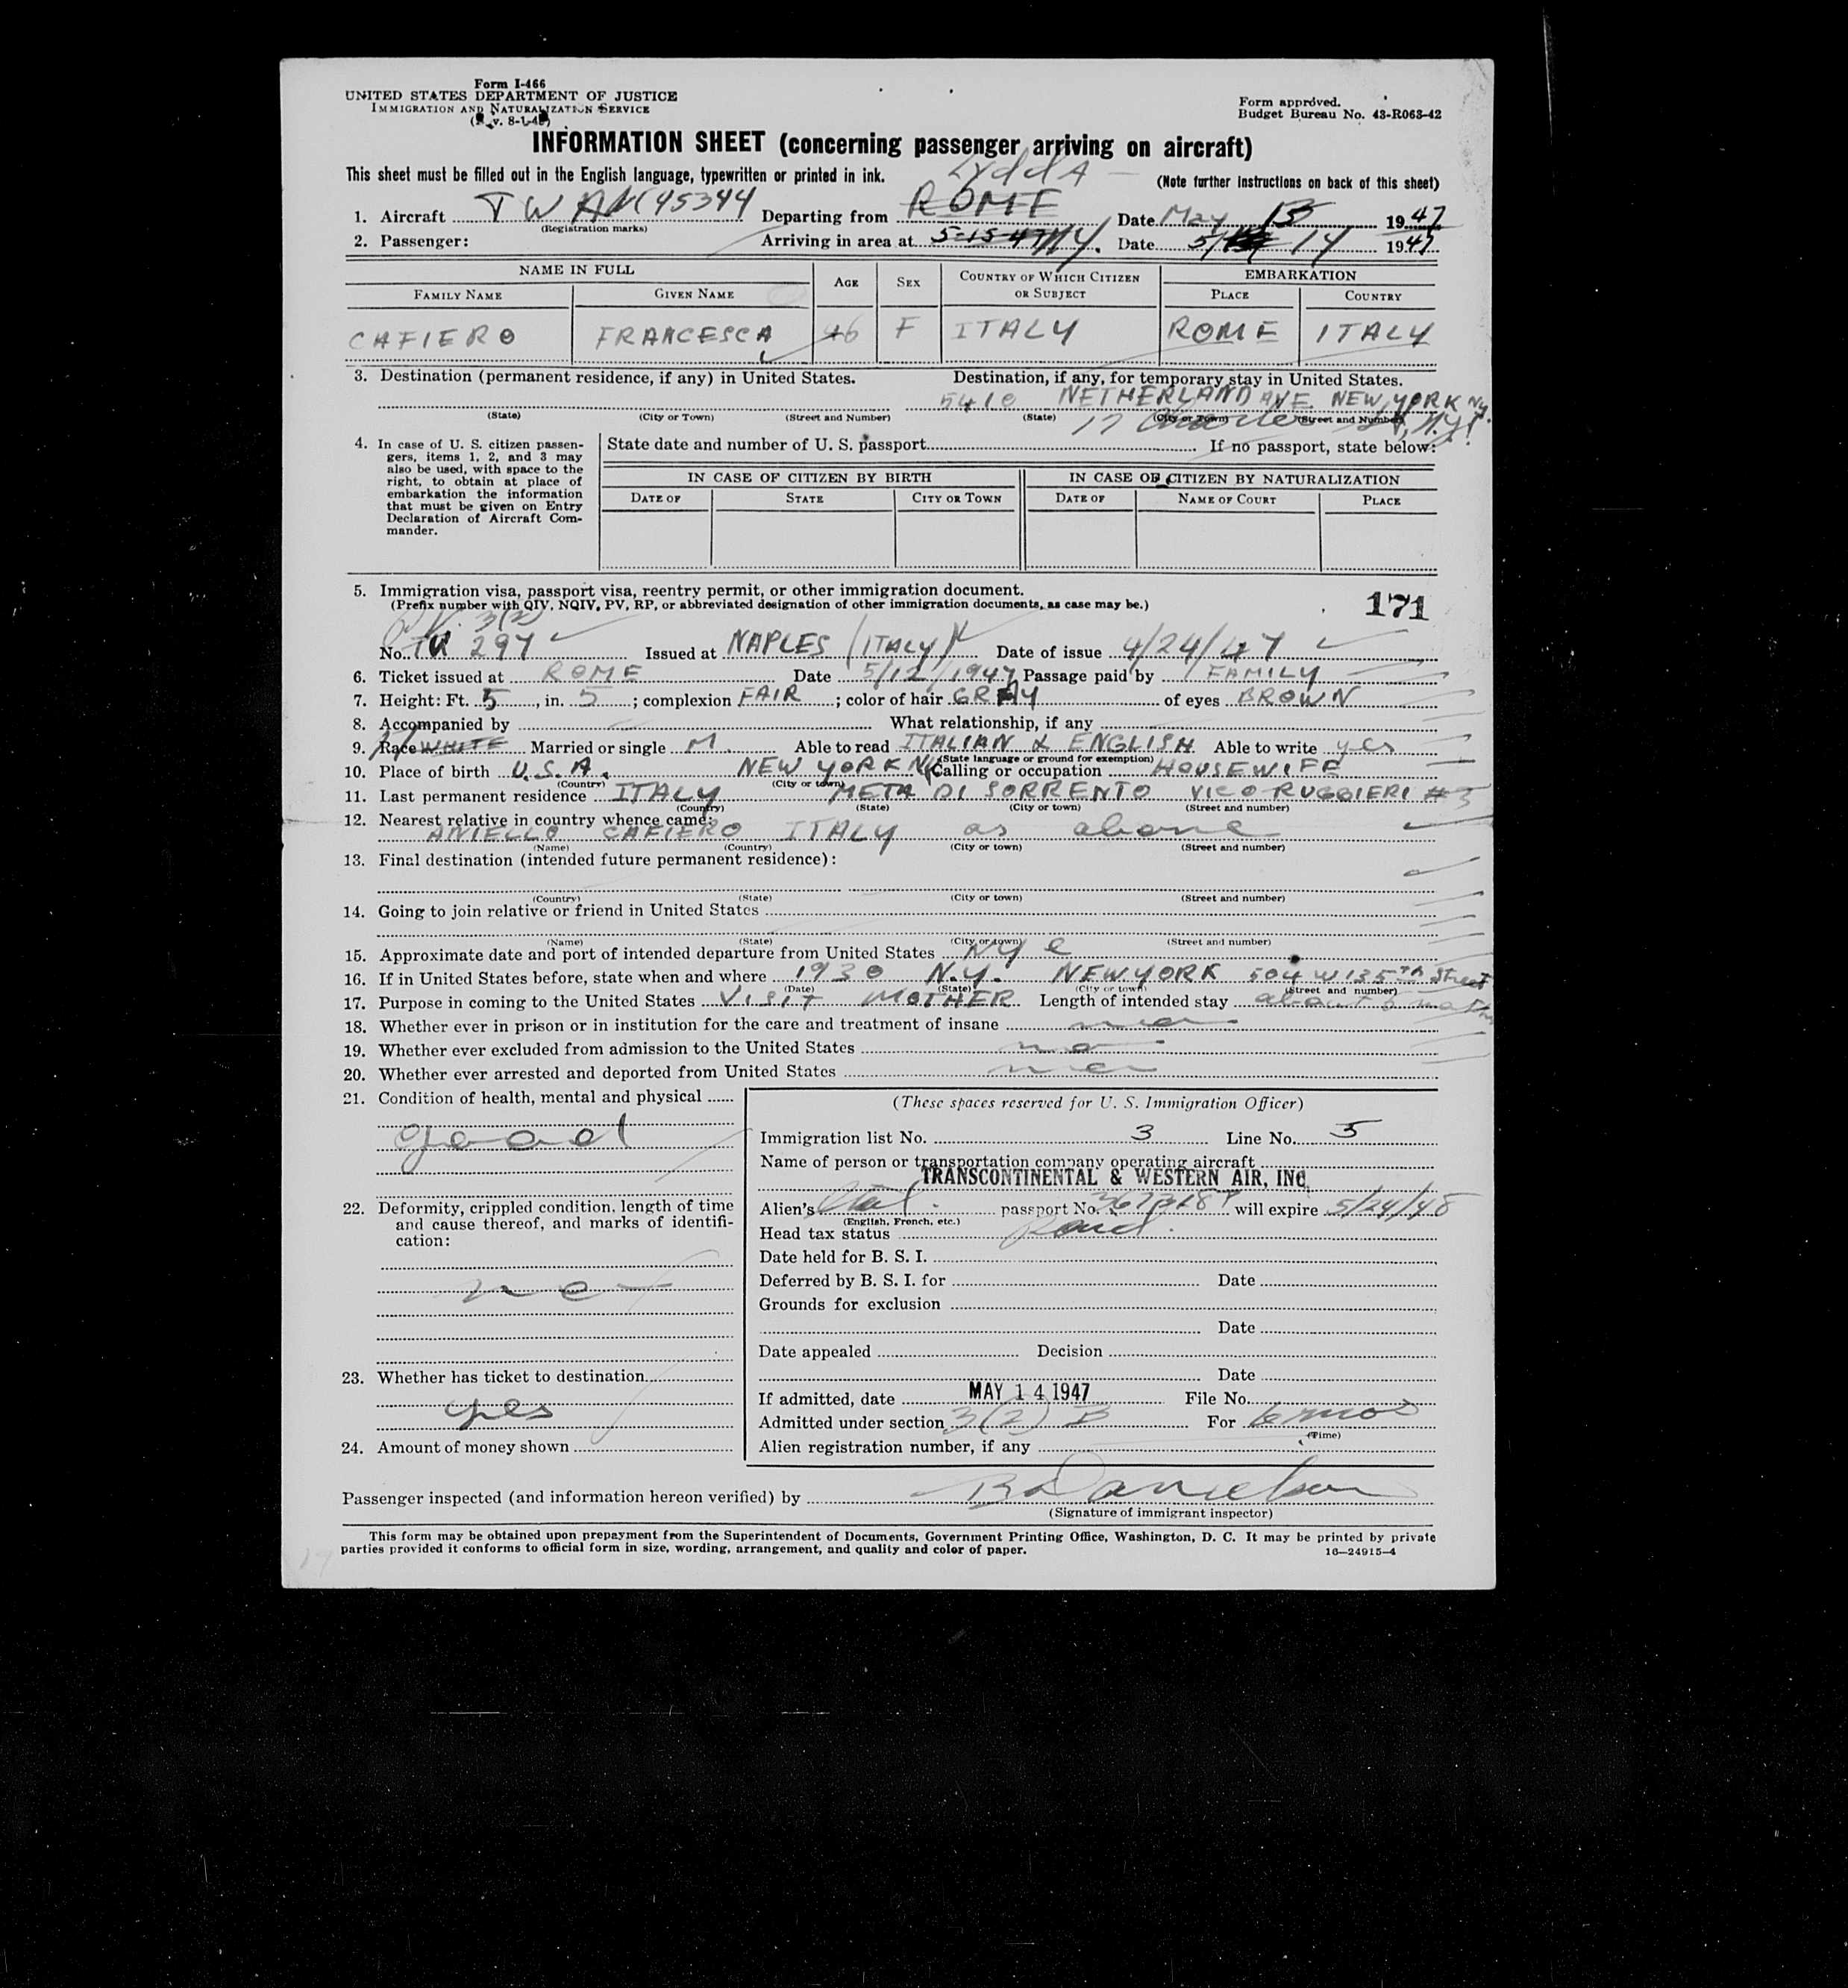 Form I-466
UNITED STATES DEPARTMENT OF JUSTICE
IMMIGRATION AND NATURALIZATION SERVICE
Form approved.
Budget Bureau No. 43-R063-42
INFORMATION SHEET (concerning passenger arriving on aircraft)
This sheet must be filled out in the English language, typewritten or printed in ink.
(Note further instructions on back of this sheet)
LyddA
1. Aircraft TWA NC45344 Departing from ROME Date May 13 1947
(Registration marks)
2. Passenger: Arriving in area at 5-15-47 N.Y. Date 5/ 14 1947
NAME IN FULL AGE SEX COUNTRY OF WHICH CITIZEN OR SUBJECT EMBARKATION
FAMILY NAME GIVEN NAME PLACE COUNTRY
CAFIERO FRANCESCA 46 F ITALY ROME ITALY
3. Destination (permanent residence, if any) in United States. Destination, if any, for temporary stay in United States.
5410 NETHERLAND AVE. NEW YORK NY.
(State) (City or Town) (Street and Number) (State) (City or Town) (Street and Number)
17 N.Y.
4. In case of U. S. citizen passengers, items 1, 2, and 3 may also be used, with space to the right, to obtain at place of embarkation the information that must be given on Entry Declaration of Aircraft Commander.
State date and number of U. S. passport If no passport, state below:
IN CASE OF CITIZEN BY BIRTH IN CASE OF CITIZEN BY NATURALIZATION
DATE OF STATE CITY OR TOWN DATE OF NAME OF COURT PLACE
5. Immigration visa, passport visa, reentry permit, or other immigration document.
(Prefix number with QIV, NQIV, PV, RP, or abbreviated designation of other immigration documents, as case may be.)
171
3(2)
No. 297 Issued at NAPLES (ITALY) Date of issue 4/24/47
6. Ticket issued at ROME Date 5/12/1947 Passage paid by FAMILY
7. Height: Ft. 5, in. 5; complexion FAIR; color of hair GRAY of eyes BROWN
8. Accompanied by What relationship, if any
9. Race WHITE Married or single M. Able to read ITALIAN & ENGLISH Able to write yes
(State language or ground for exemption)
10. Place of birth U.S.A. NEW YORK NY Calling or occupation HOUSEWIFE
(Country) (City or town)
11. Last permanent residence ITALY META DI SORRENTO VICO RUGGIERI # 3
(Country) (State) (City or town) (Street and number)
12. Nearest relative in country whence came:
ANIELLO CAFIERO ITALY as above
(Name) (Country) (City or town) (Street and number)
13. Final destination (intended future permanent residence):
(Country) (State) (City or town) (Street and number)
14. Going to join relative or friend in United States
(Name) (State) (City or town) (Street and number)
15. Approximate date and port of intended departure from United States NY C
16. If in United States before, state when and where 1930 N.Y. NEW YORK 504 W 135TH Street
(Date) (State) (City or town) (Street and number)
17. Purpose in coming to the United States VISIT MOTHER Length of intended stay about 6 moths
18. Whether ever in prison or in institution for the care and treatment of insane no
19. Whether ever excluded from admission to the United States no
20. Whether ever arrested and deported from United States no
21. Condition of health, mental and physical
good
22. Deformity, crippled condition, length of time and cause thereof, and marks of identification:
no
23. Whether has ticket to destination
yes
24. Amount of money shown
(These spaces reserved for U. S. Immigration Officer)
Immigration list No. 3 Line No. 5
Name of person or transportation company operating aircraft
TRANSCONTINENTAL & WESTERN AIR, INC.
Alien's Ital. passport No. will expire 5/24/48
(English, French, etc.)
Head tax status Paid
Date held for B. S. I.
Deferred by B. S. I. for Date
Grounds for exclusion
Date
Date appealed Decision
Date
If admitted, date MAY 14 1947 File No.
Admitted under section 3(2) B For 6 mos
(Time)
Alien registration number, if any
Passenger inspected (and information hereon verified) by B Danielson
(Signature of immigrant inspector)
This form may be obtained upon prepayment from the Superintendent of Documents, Government Printing Office, Washington, D. C. It may be printed by private
parties provided it conforms to official form in size, wording, arrangement, and quality and color of paper.
16—24915-4